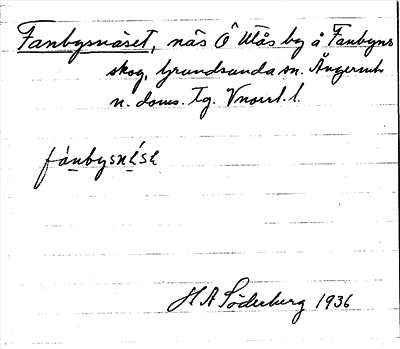 Fanbysnäset, näs Ö Utås by å Fanbyns
skog, Grundsunda sn. Ångerml.
n. doms. tg. Vnorrl. l.
fánbysnése
H A Söderberg 1936